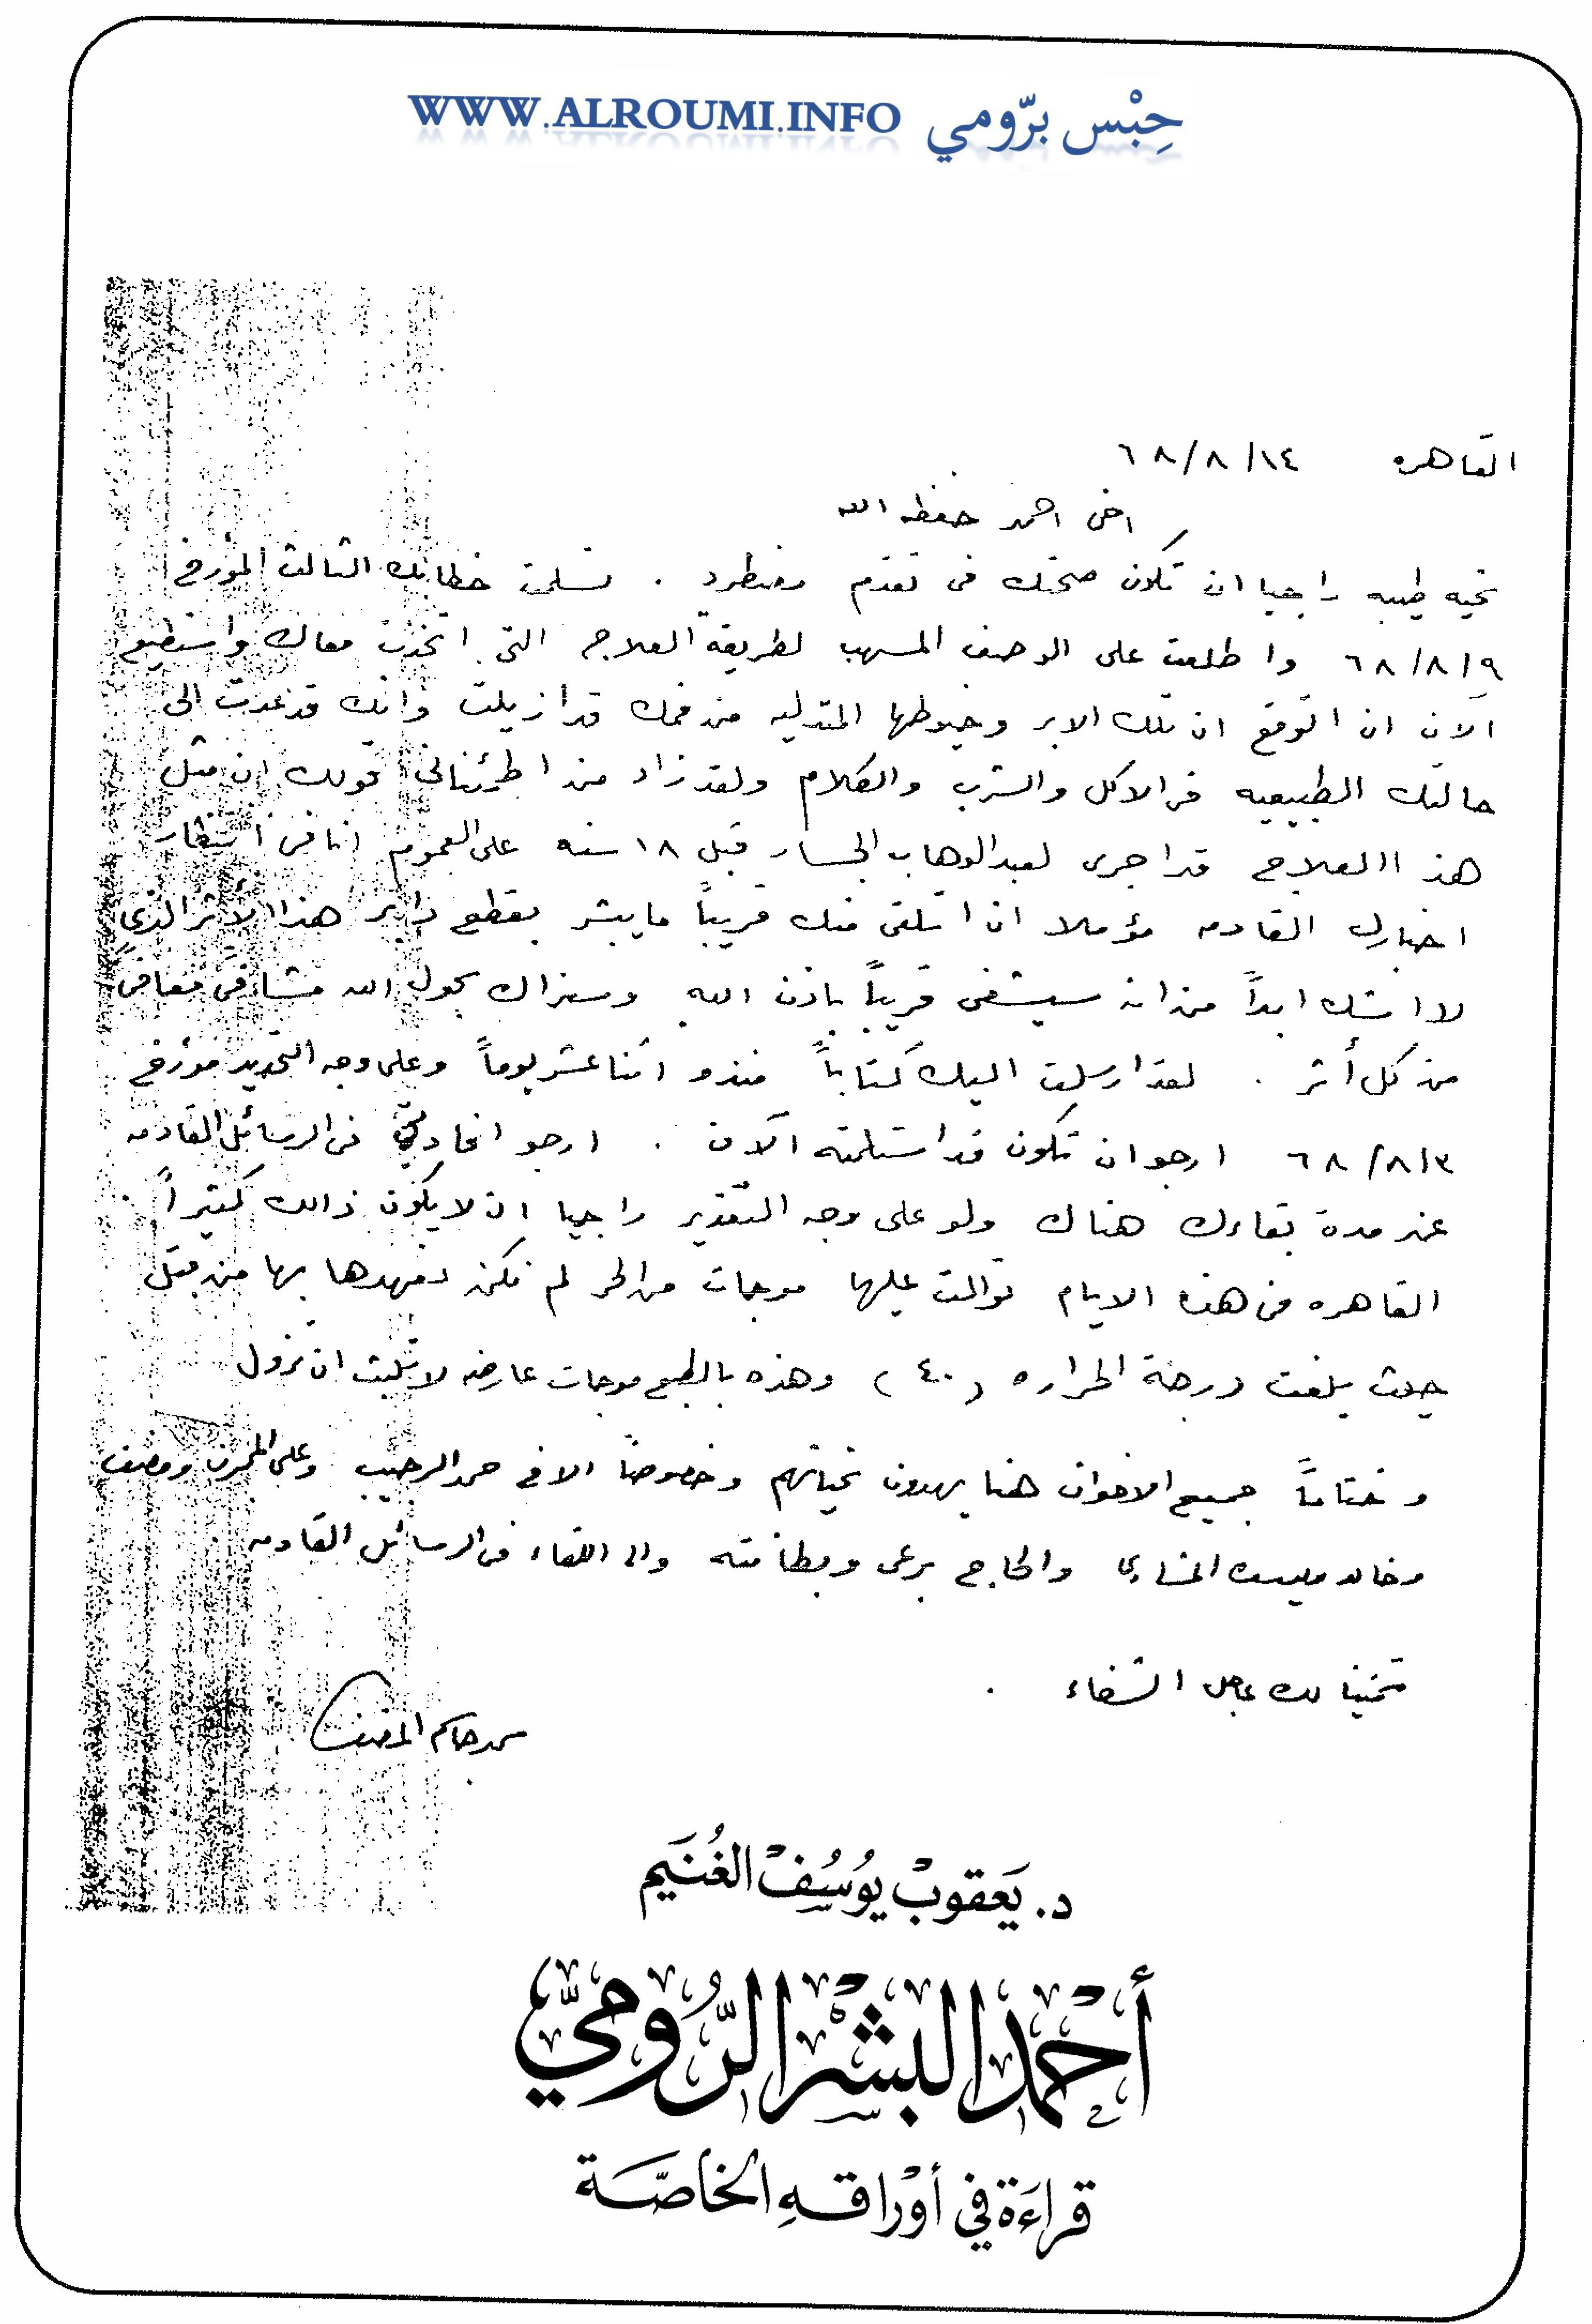 WWW.ALROUMI.INFO حِبْس برّومي
القاهره ٦٨/٨/١٤
اخي احمد حفظه الله
تحيه طيبه راجيا ان تكون صحتك في تقدم مضطرد . تسلمت خطابك الثالث المؤرخ
٦٨/٨/٩ واطلعت على الوصف المسهب لطريقة العلاج التي اتخذت معاك واستطيع
الآن ان اتوقع ان تلك الابر وخيوطها المتدليه من فمك قد ازيلت وانك قد عدت الى
حالتك الطبيعيه في الاكل والشرب والكلام ولقد زاد من اطمئناني قولك ان مثل
هذا العلاج قد اجرى لعبدالوهاب الجسار قبل ١٨ سنه على العموم انا في انتظار
اخبارك القادمه مؤملا ان اتلقى منك قريباً ما يبشر بقطع دابر هذا الأثر الذي
لا اشك ابداً من انه سيشفى قريباً باذن الله وسنراك بحول الله معافى
من كل أثر . لقد ارسلت اليك كتاباً منذو اثنا عشر يوماً وعلى وجه التحديد مؤرخ
٦٨/٨/٣ ارجو ان تكون قد استلمته الآن . ارجو افادتي في الرسائل القادمه
عن مدة بقاءك هناك ولو على وجه التقدير راجيا ان لا يكون ذالك كثيراً .
القاهره في هذه الايام توالت عليها موجات من الحر لم نكن نعهدها بها من قبل
حيث بلغت درجة الحراره (٤٠) وهذه بالطبع موجات عارضه لا تلبث ان تزول
وختاماً جميع الاخوان هنا يهدون تحياتهم وخصوصاً الاخ حمد الرجيب وعلى
وخالد والحاج برعى وبطانته والى اللقاء في الرسائل القادمه
متمنيا لك عاجل الشفاء .
محمد جاسم المضف
د. يَعقوبْ يوُسُفْ الغُنَيم
أحْمَد البشْر الرُّومِيّ
قراءَة في أوْراقهِ الخاصّة